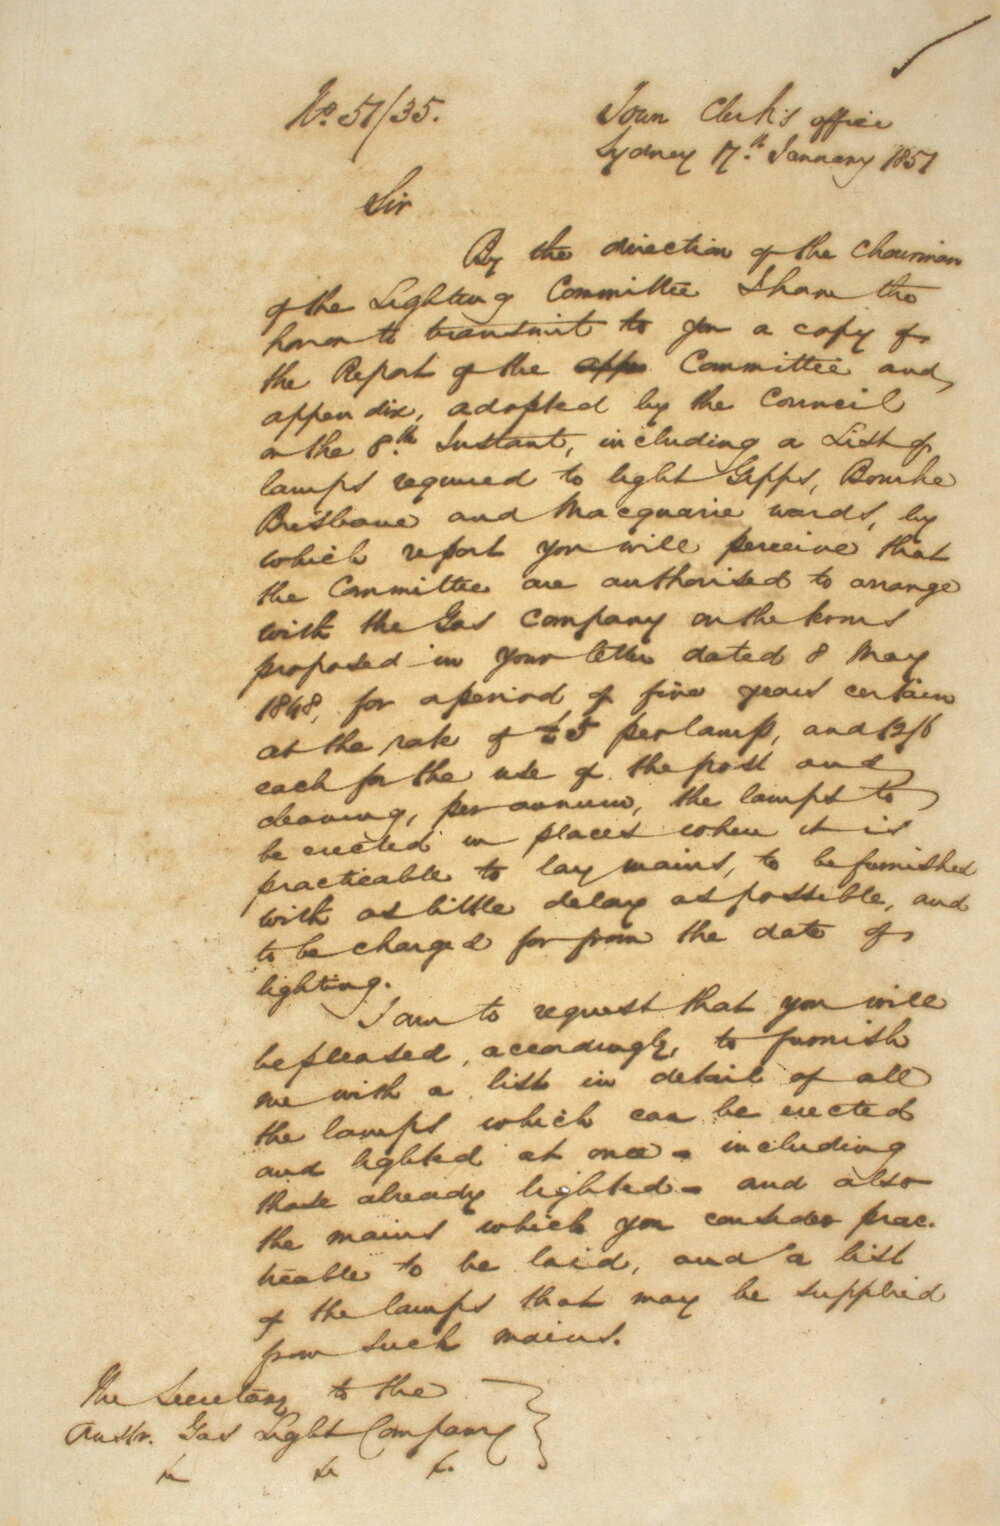 No. 51/35.
Town Clerk's office
Sydney 17.th January 1851
Sir
By the direction of the Chairman
of the Lighting Committee I have the
honor to transmit to you a copy of
the Report of the appe Committee and
appendix, adopted by the Council
on the 8.th Instant, including a List of
lamps required to light Gipps, Bourke
Brisbane and Macquarie wards, by
which report you will perceive that
the Committee are authorised to arrange
with the Gas Company on the terms
proposed in your letter dated 8 May
1848, for a period of five years certain
at the rate of £5 per lamp, and 12/6
each for the use of the post and
cleaning, per annum, the lamps to
be erected in places where it is
practicable to lay mains, to be furnished
with as little delay as possible, and
to be charged for from the date of
lighting.
I am to request that you will
be pleased, accordingly, to furnish
me with a list in detail of all
the lamps which can be erected
and lighted at once - including
those already lighted - and also
the mains which you consider prac-
ticable to be laid, and a list
of the lamps that may be supplied
from such mains.
The Secretary to the
Austr. Gas Light Company
&c &c &c.